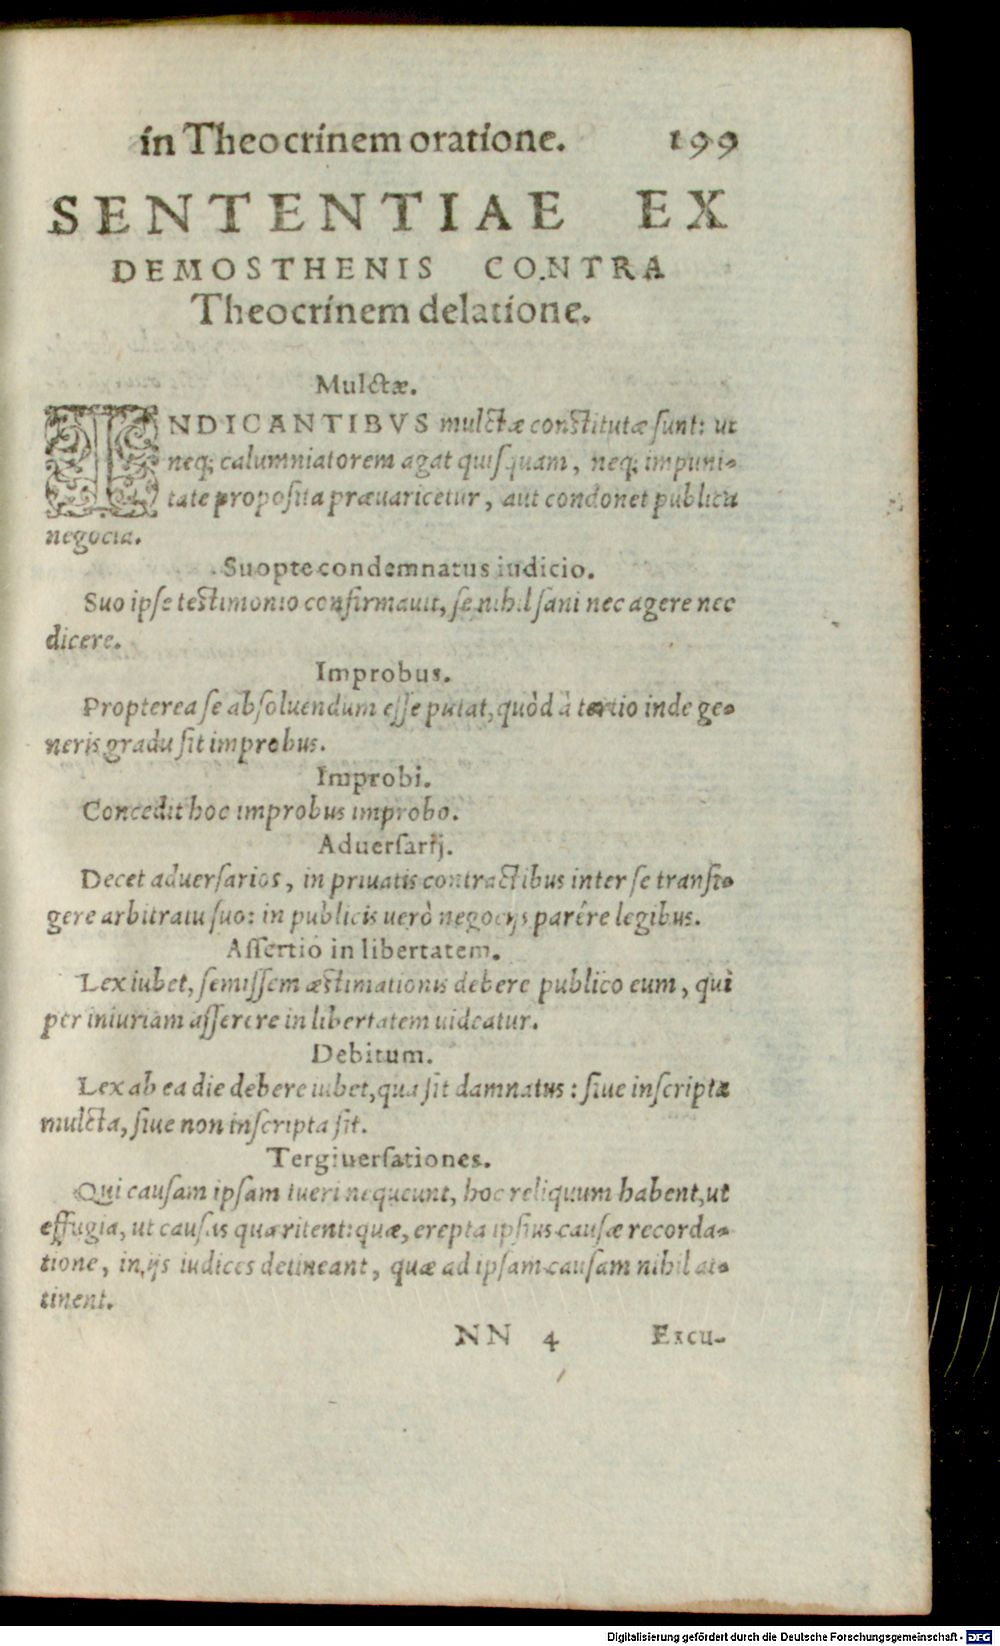 in Theocrinem oratione. 199
SENTENTIAE EX
DEMOSTHENIS CONTRA
Theocrinem delatione.
Mulctæ.
INDICANTIBVS mulctæ constitutæ sunt: ut
neq; calumniatorem agat quisquam, neq; impuni-
tate proposita præuaricetur, aut condonet publica
negocia.
Suopte condemnatus iudicio.
Suo ipse testimonio confirmauit, se nihil sani nec agere nec
dicere.
Improbus.
Propterea se absoluendum esse putat, quòd à tertio inde ge-
neris gradu sit improbus.
Improbi.
Concedit hoc improbus improbo.
Aduersarij.
Decet aduersarios, in priuatis contractibus inter se transi-
gere arbitratu suo: in publicis uerò negocijs parére legibus.
Assertio in libertatem.
Lex iubet, semissem æstimationis debere publico eum, qui
per iniuriam asserere in libertatem uideatur.
Debitum.
Lex ab ea die debere iubet, qua sit damnatus: siue inscripta
mulcta, siue non inscripta sit.
Tergiuersationes.
Qui causam ipsam tueri nequeunt, hoc reliquum habent, ut
effugia, ut causas quæritent: quæ, erepta ipsius causæ recorda-
tione, in ijs iudices detineant, quæ ad ipsam causam nihil at-
tinent.
NN 4 Excu-
Digitalisierung gefördert durch die Deutsche Forschungsgemeinschaft - DFG